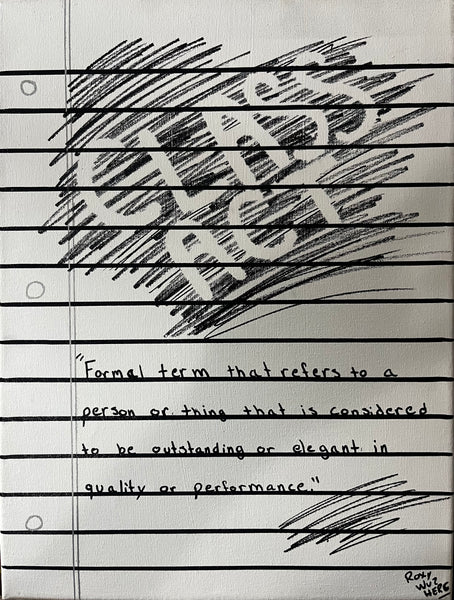 CLASS
ACT
"Formal term that refers to a
person or thing that is considered
to be outstanding or elegant in
quality or performance."
Roxy
WUZ
HERE